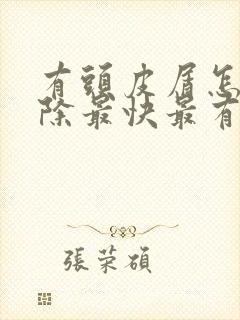 有頭皮屑怎
除最快最有
張荣碩